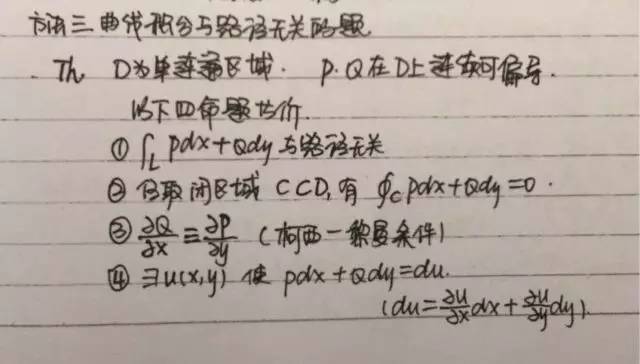 方法三 曲线积分与路径无关的题
Th. D为单连通区域. P.Q在D上连续可偏导.
以下四命题等价.
① ∫_L Pdx+Qdy 与路径无关
② 任取闭区域 C⊂D, 有 ∮_C Pdx+Qdy=0.
③ ∂Q/∂x ≡ ∂P/∂y (柯西—黎曼条件)
④ ∃u(x,y) 使 pdx+Qdy=du.
(du=∂u/∂x dx+∂u/∂y dy).